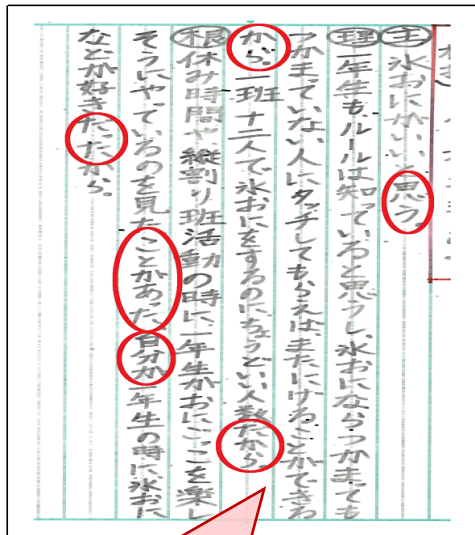 主 氷おにがいいと思う。
理 一年生もルールは知っていると思うし、氷おにならつかまっても
つかまっていない人にタッチしてもらえば、またにげることができる
から。一班十二人で氷おにをするのにちょうどいい人数だから。
根 休み時間や、縦割り班活動の時に、一年生がおにごっこを楽し
そうにやっているのを見たことがあった。自分が一年生の時に氷おに
などが好きだったから。